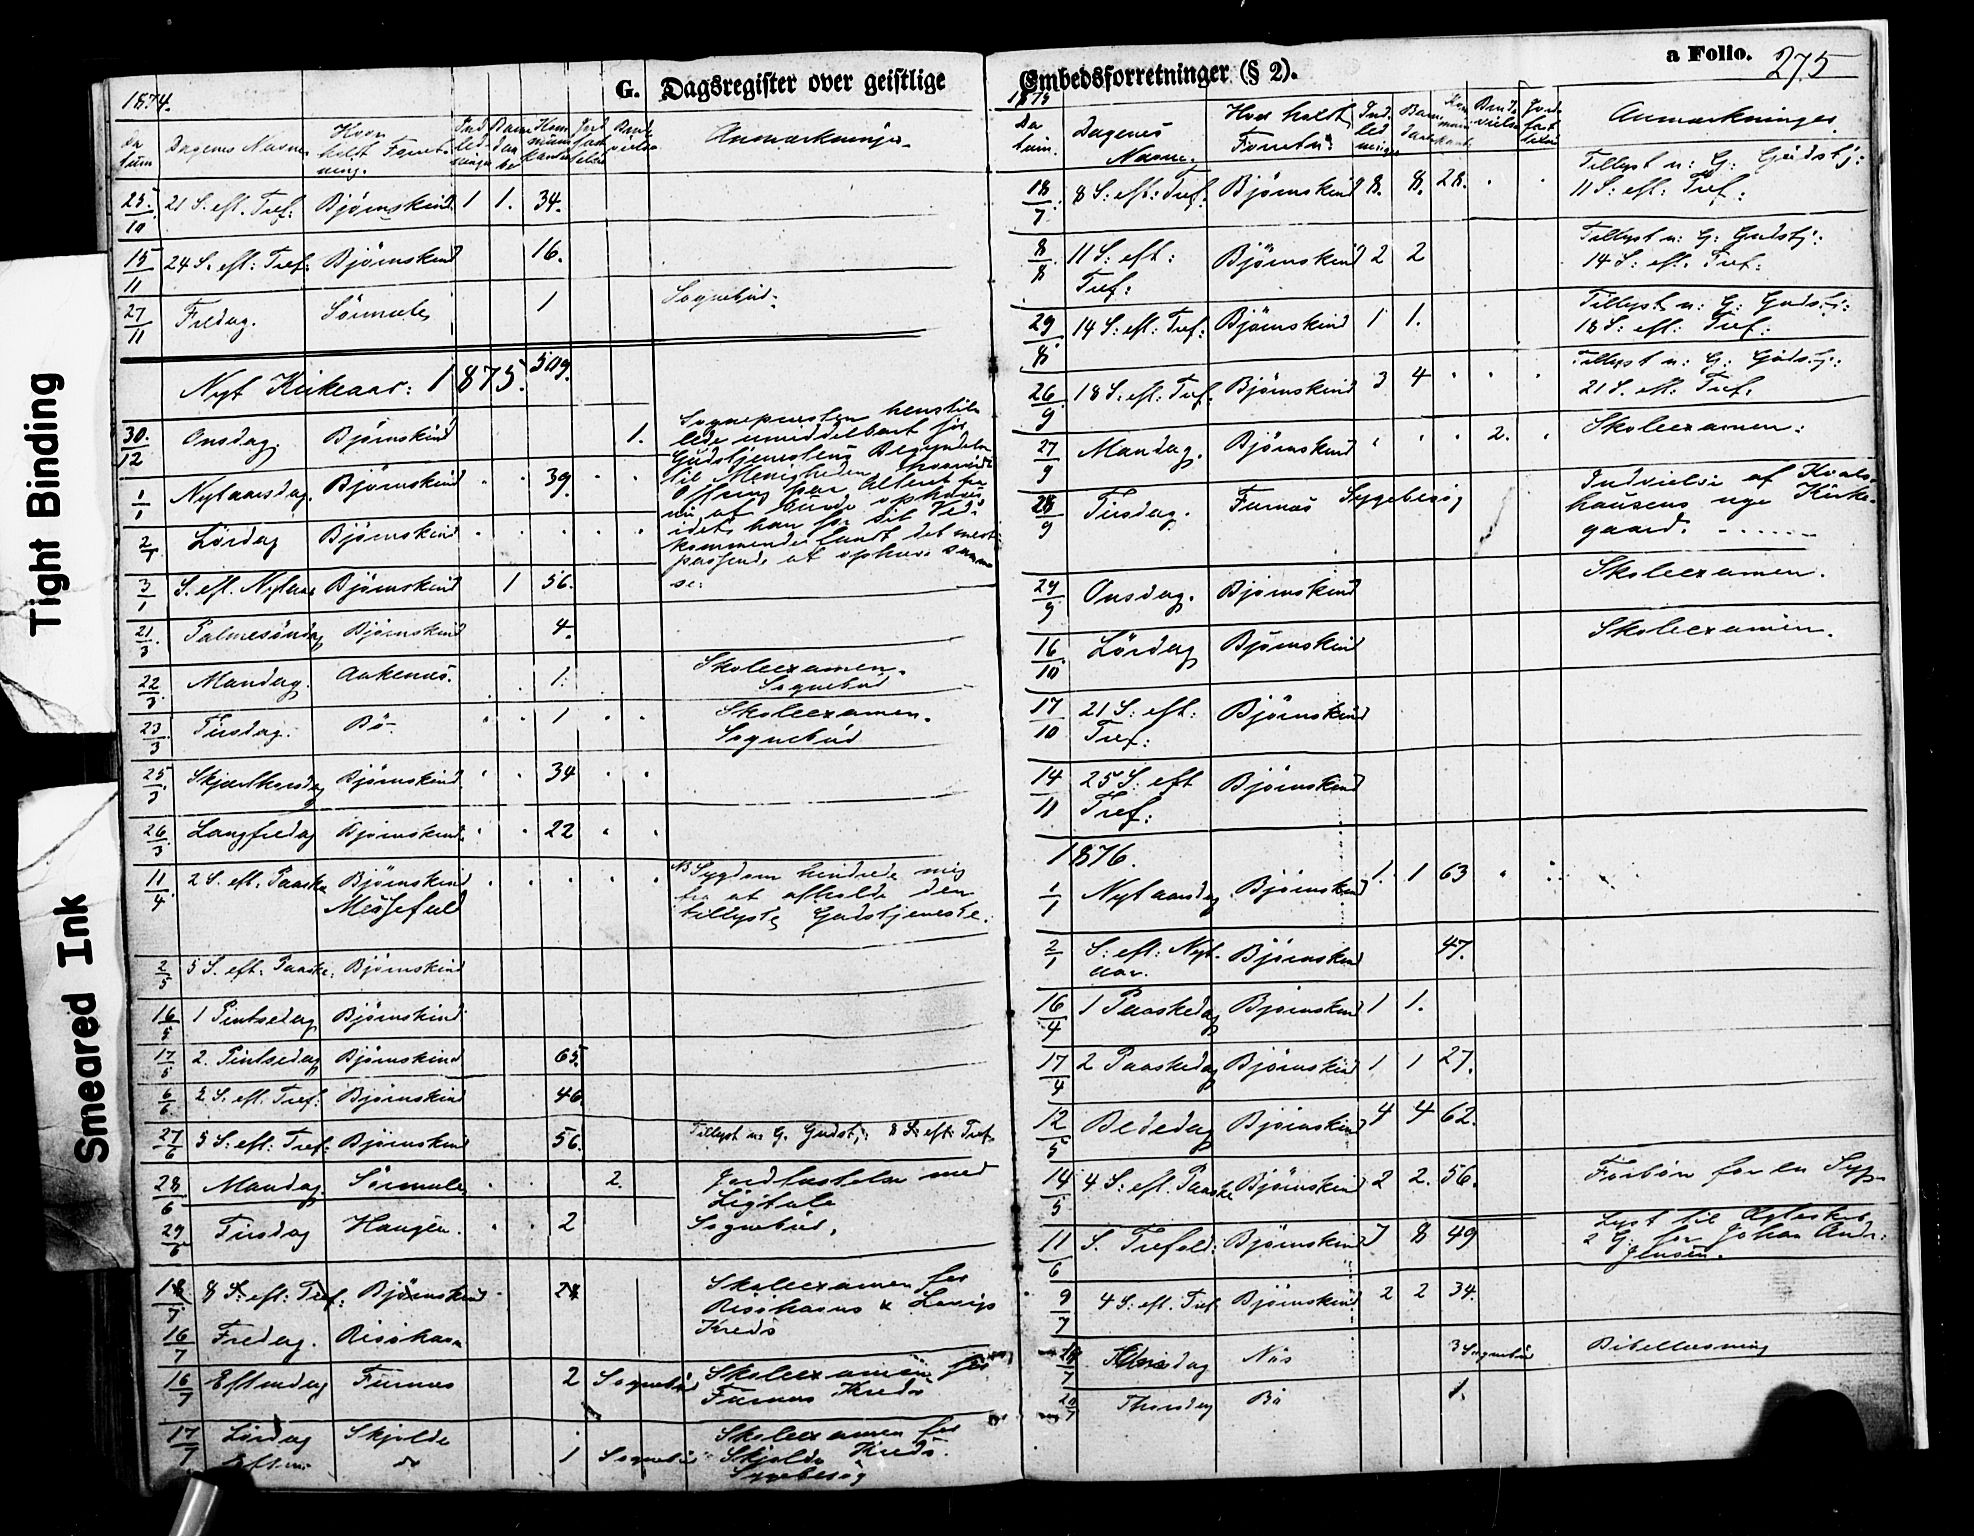 Tight Binding
Smeared Ink
G. Dagsregister over geistlige
1874.
Da tum Dagenes Navne Hvor holdt Forret-ning. Ind led ninger Anmærkninger.
25/10 21 S. eft. Tref: Björnskind 1 1. 34.
15/11 24 S. eft: Tref: Björnskind 16.
27/11 Fredag. Sörmula 1 Sognebud.
Nyt Kirkeaar: 1875. 509.
30./12 Onsdag. Björnskind 1. Sognepræsten henstil-
lede umiddelbart för
Gudstjenestens Begyndelse
til Menigheden, hvorvidt
1/1 Nytaarsdag. Björnskind 39.
Offring paa Alteret
burde ophæves
2/1 Lördag Björnskind
idet han for sit Ved-
kommende fandt det mest
passende at ophæve samme
3/1 S. eft. Nytaar Björnskind 1 56.
se:
21/3 Palmesöndag Björnskind 4.
22/3 Mandag. Aakenes. 1. Skoleexamen.
Sognebud
23/3 Tirsdag. Bö 1 Skoleexamen.
Sognebud
25/3 Skjærthorsdag Björnskind 34
26/3 Langfredag Björnskind 22
11/4 2 S. eft. Paaske Björnskind
Messefald
NB Sygdom hindrede mig
fra at afholde den
tillyste Gudstjeneste.
2/5 5 S. eft: Paaske: Björnskind
16/5 1 Pintsedag Björnskind
17/5 2. Pintsedag Björnskind 65.
6/6 2 S. eft. Tref: Björnskind 46
27/6 5 S: eft: Tref: Björnskind 56. Tillyst n: G. Gudstj: 8 S: eft: Tref.
28/6 Mandag. Sörmula 2. Jordfæstelse med
Ligtale
29/6 Tirsdag Haugen. 2 Sognebud.
18/7 8 S: eft: Tref: Björnskind 28 Skoleexamen for
Risöhavns &
Kreds
16/7 Fredag. Risöhavn
16/7 Eftmdag Furnæs 2 Sognebud Skoleexamen for
Furnæs Kreds
17/7 Lördag Skjolde Skoleexamen for
Eftm: do 1 Sognebud Skjolde Kreds.
Sygebesög
Embedsforretninger (§ 2).
a Folio. 275
1875
Da tum. Dagenes Navne. Hvor holdt Forretn: Ind led ninger Anmærkninger.
18/7 8 S: eft: Tref. Björnskind 8. 8. 28. Tillyst n: G: Gudstj:
11 S: eft: Tref:
8/8 11 S: eft: Tref: Björnskind 2 2 Tillyst n: G: Gudstj:
14 S: eft. Tref:
29/8 14 S: eft: Tref: Björnskind 1 1. Tillyst n: G: Gudstj:
18 S: eft: Tref:
26/9 18 S: eft: Tref. Björnskind 3 4 Tillyst n: G: Gudstj:
21 S. eft. Tref.
27/9 Mandag. Björnskind 2. Skoleexamen:
28/9 Tirsdag. Furnæs Sygebesög Indvielse af Kvals-
hausens nye Kirke-
gaard.
29/9 Onsdag. Björnskind Skoleexamen.
16/10 Lördag Björnskind Skoleexamen.
17/10 21 S: eft: Tref: Björnskind
14/11 25 S. eft Tref: Björnskind
1876.
1/1 Nytaarsdag Björnskind 1. 1 63
2/1 S: eft: Nyt-aar. Björnskind 47.
16/4 1 Paaskedag Björnskind 1 1.
17/4 2 Paaskedag Björnskind 1 1 27.
12/5 Bededag Björnskind 4 4 62.
14/5 4 S: eft. Paaske Björnskind 2 2. 56. Forbön for en Syg.
11/6 S. Trefold: Björnskind 7 8 49 Lyst til Ægteskab
2 G: for Johan Andr:
Jensen.
9/7 4 S: eft. Tref. Björnskind 2 2 34.
18/7 Tirsdag Næs 3 Sognebud Bibellæsning
20/7 Thorsdag Bö 1.